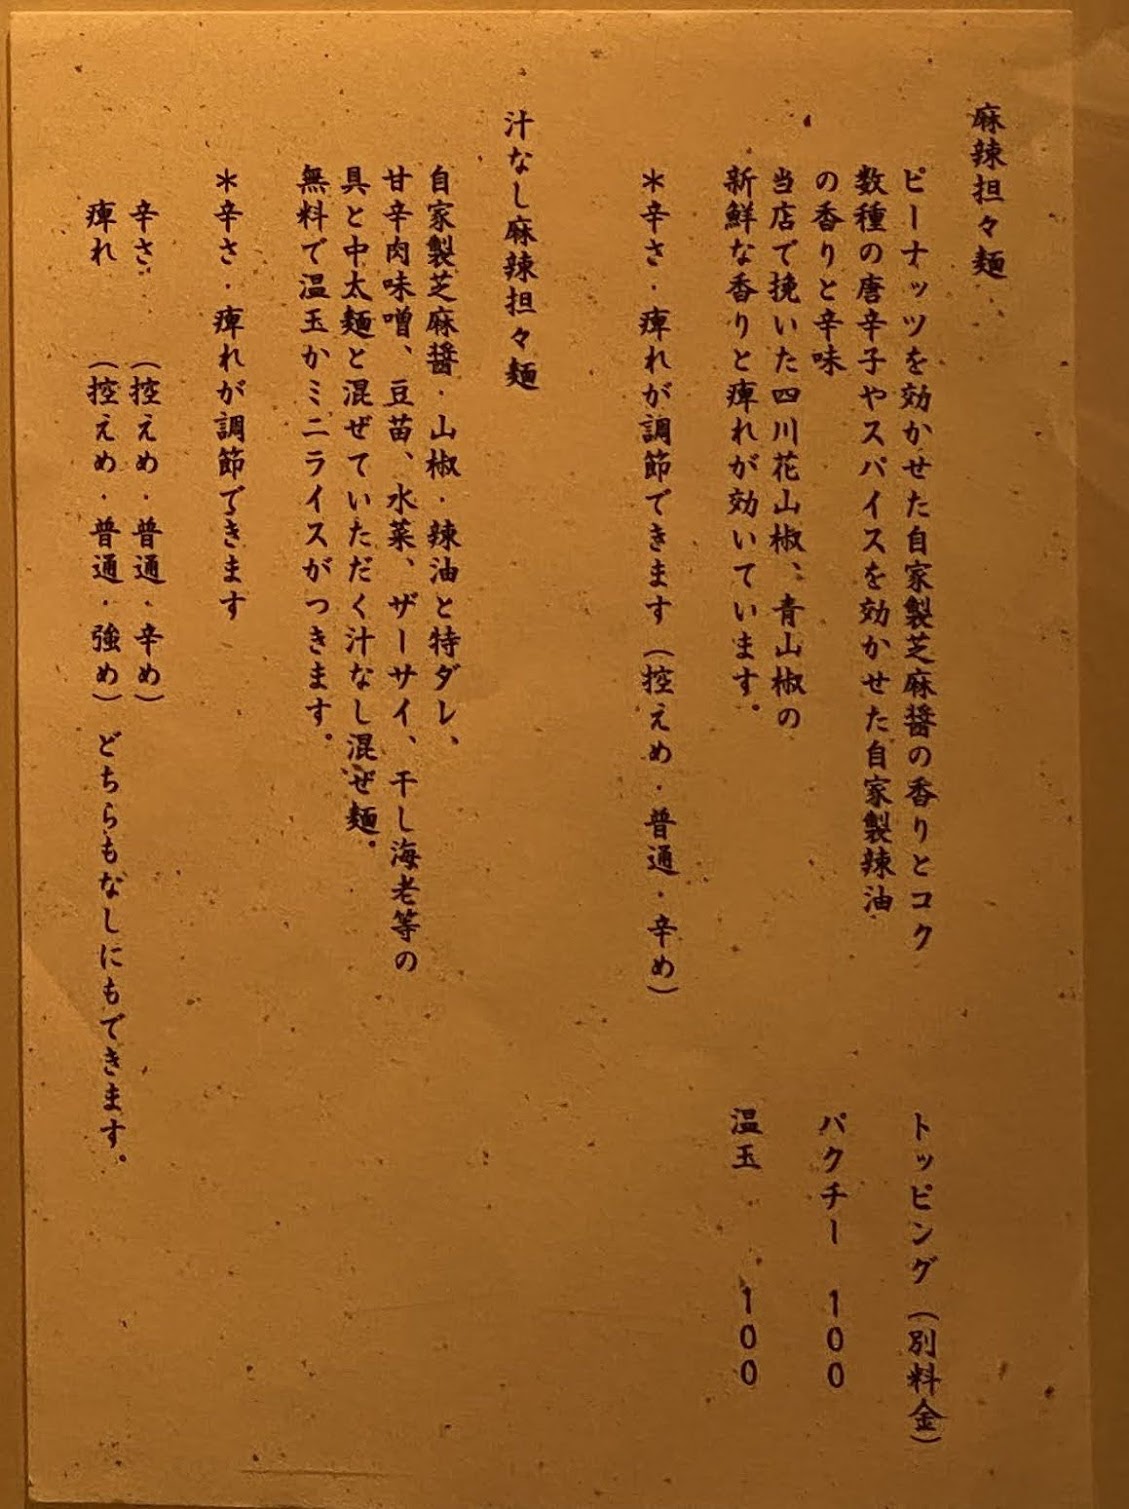 麻辣担々麺
ピーナッツを効かせた自家製芝麻醤の香りとコク
数種の唐辛子やスパイスを効かせた自家製辣油
の香りと辛味
当店で挽いた四川花山椒、青山椒の
新鮮な香りと痺れが効いています。
＊辛さ・痺れが調節できます（控えめ・普通・辛め）
汁なし麻辣担々麺
自家製芝麻醤・山椒・辣油と特ダレ、
甘辛肉味噌、豆苗、水菜、ザーサイ、干し海老等の
具と中太麺と混ぜていただく汁なし混ぜ麺。
無料で温玉かミニライスがつきます。
＊辛さ・痺れが調節できます
辛さ （控えめ・普通・辛め）
痺れ （控えめ・普通・強め）どちらもなしにもできます。
トッピング（別料金）
パクチー 100
温玉 100